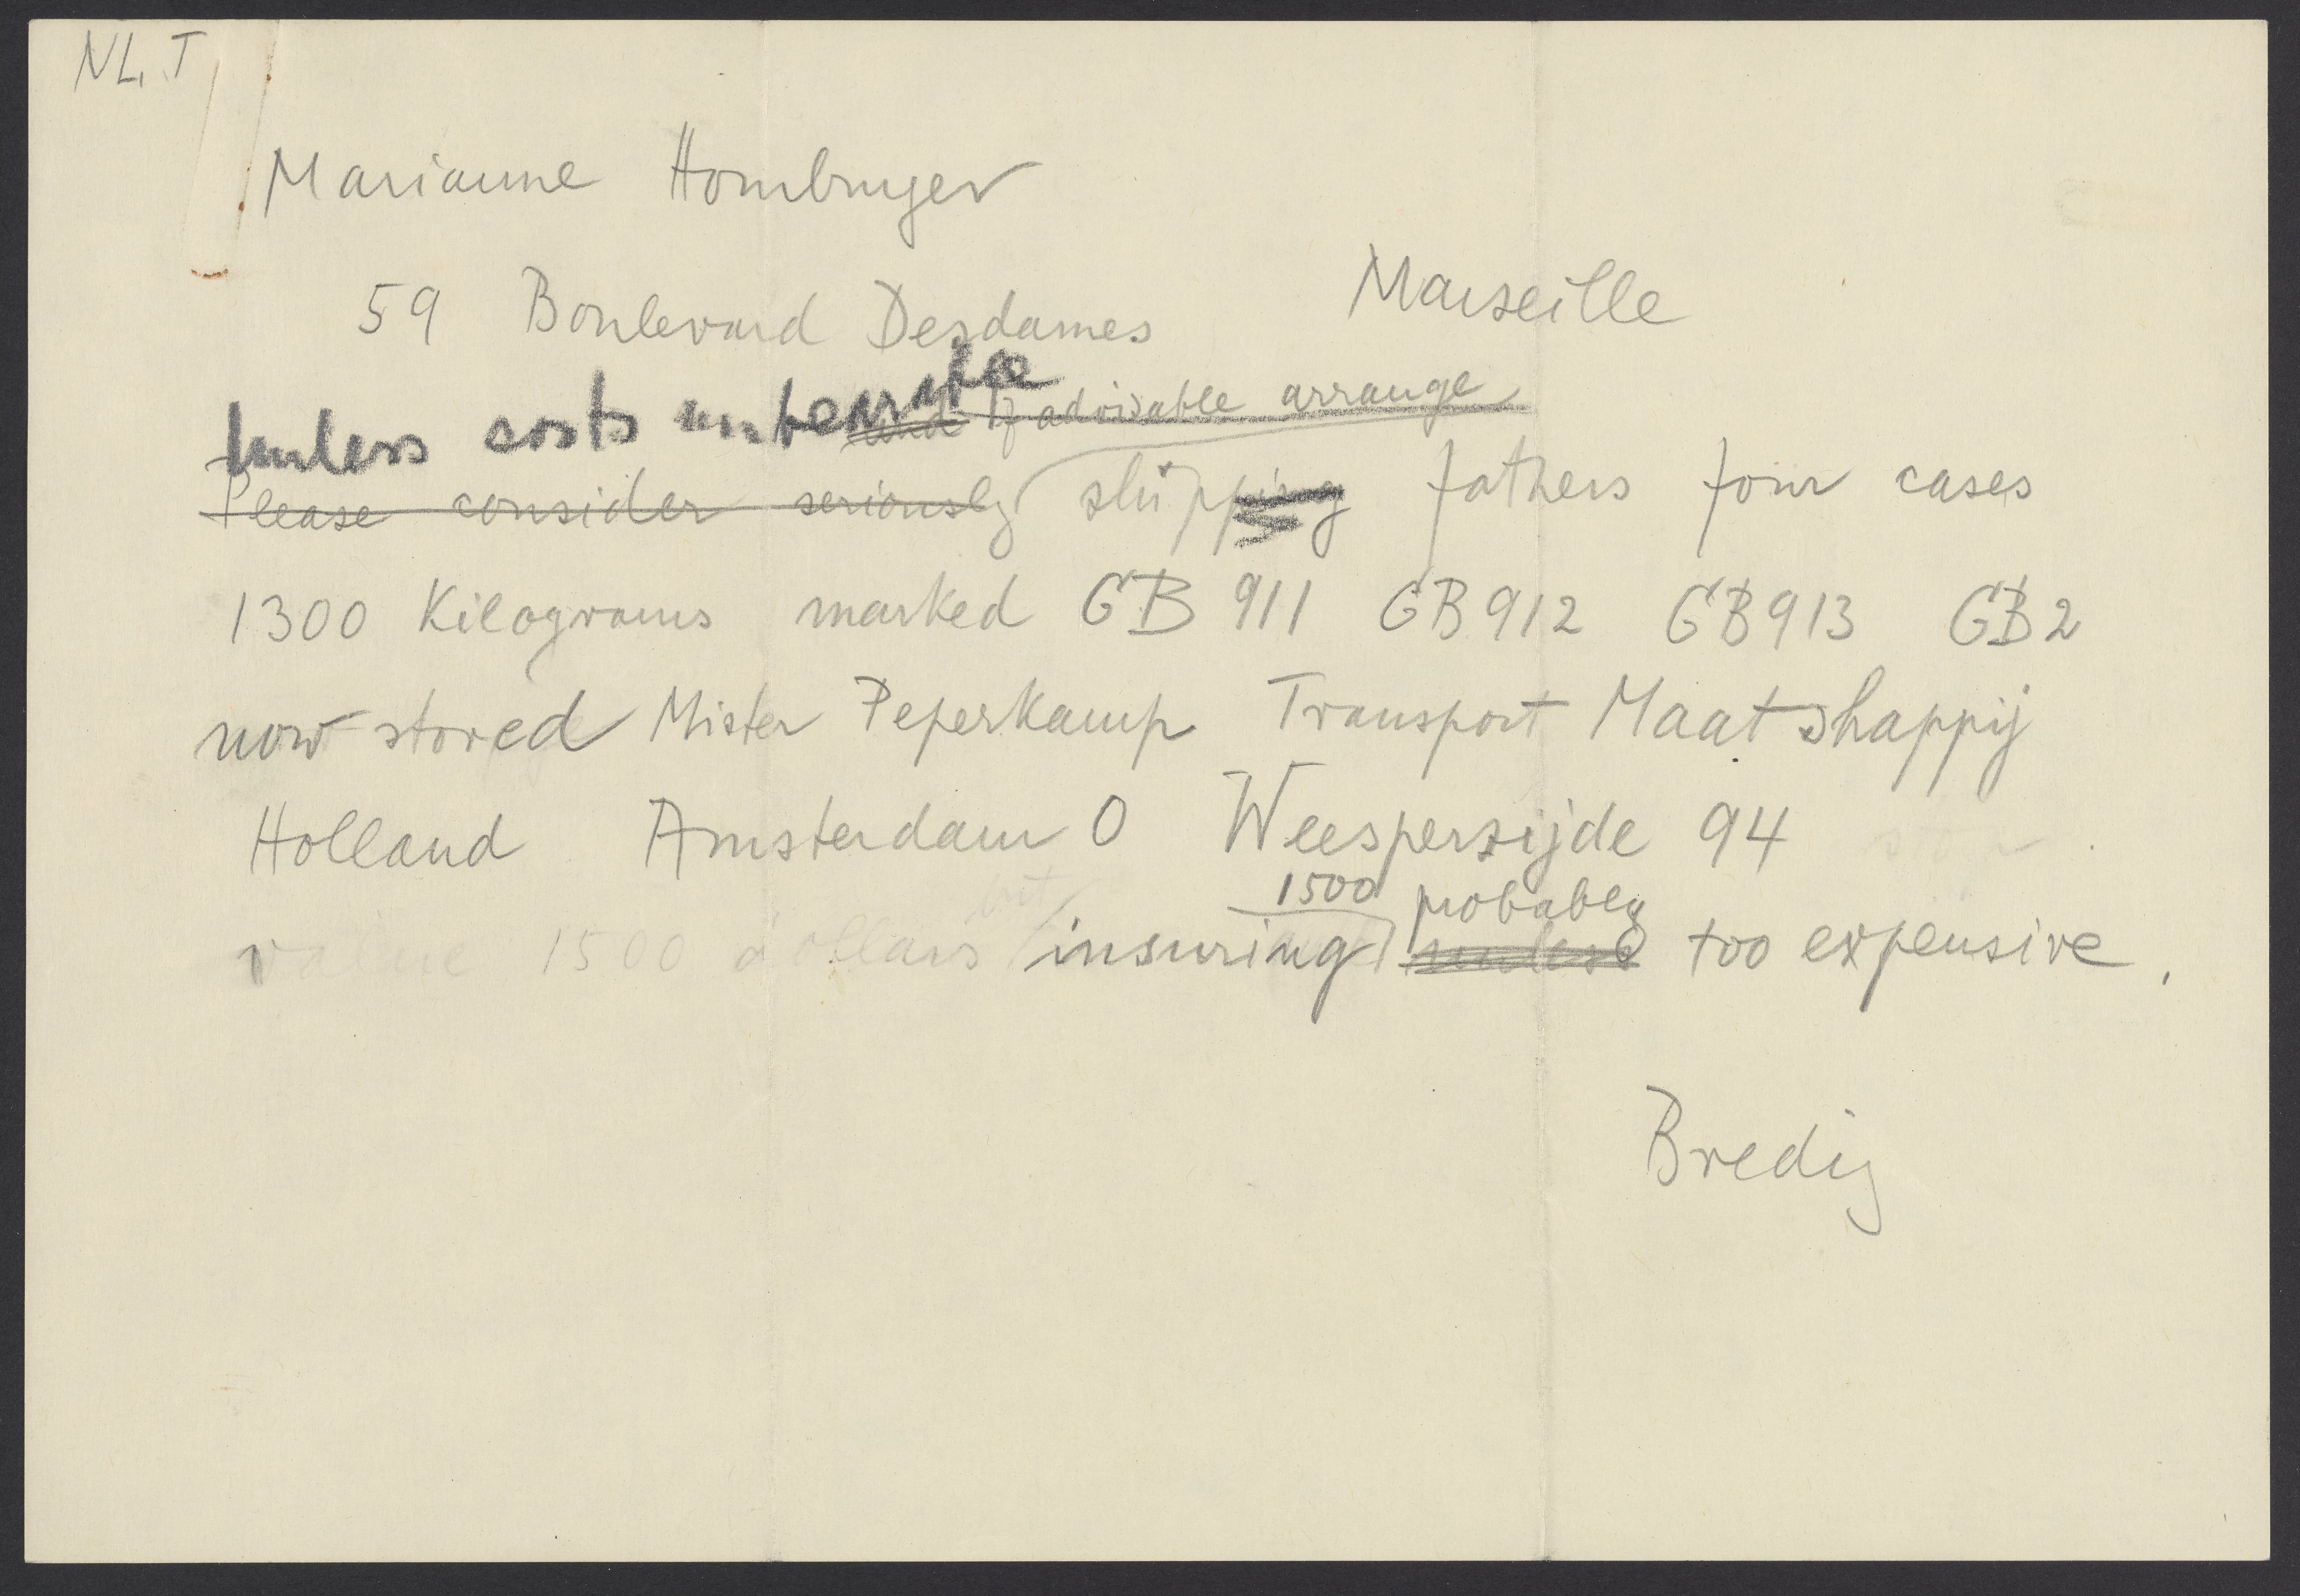 NL. T
Marianne Homburger
59 Boulevard Desdames Marseille
unless costs unbearable
and if advisable arrange
Please consider seriously shipping fathers four cases
1300 Kilograms marked GB 911 GB 912 GB 913 GB 2
now stored Mister Peperkamp Transport Maatshappij
Holland Amsterdam O Weesperzijde 94
1500 probably
value 1500 dollars but insuring unless too expensive.
Bredig